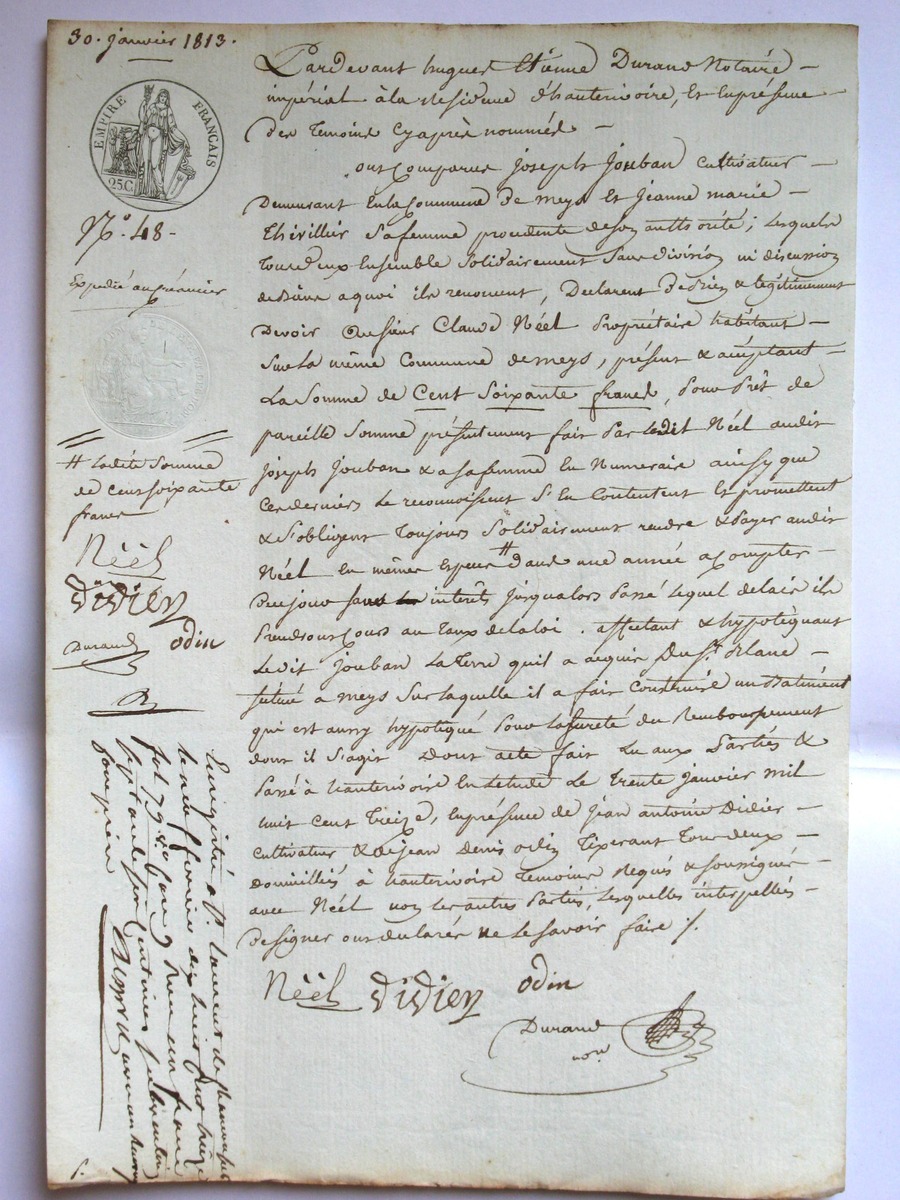 30. janvier 1813.
EMPIRE FRANÇAIS
25C.
N.o 48-
Expédié au préancier
# Ladite Somme
de cent soixante
francs
Néél
Didier
Durand odin
Pardevant hugues Etienne Durand Notaire
impérial à la Residence d'hauterivoire, Et En présence
des Temoins Cy après nommés
ont Comparus joseph jouban Cultivateur
Demeurant En la Commune de meys Et jeanne marie
Thivillier Sa femme procedente de son authorité; Lesquels
Tous deux Ensemble Solidairement Sans division ni discussion
de biens a quoi ils renoncent, Declarent Bien & légitimement
Devoir au sieur Claude Néél Propriétaire habitant
Sur La même Commune de meys, présent & acceptant
La Somme de Cent Soixante francs, Pour Prêt de
pareille Somme présentement fait Par Ledit Néél audit
joseph jouban & a sa femme En Numeraire ainsy que
Ces derniers Le reconnoissent S'En Contentent Et promettent
& S'obligent Toujours Solidairement rendre & Payer audit
Néél En mêmes Especes # dans une année a Compter
De ce jour interêts jusqualors Passé Lequel delais ils
Prendront Cours au Taux de la loi . affectant & hypotéquant
Ledit jouban La Terre qu'il a acquise Du Sr.
Située a meys Sur laquelle il a fait Construire un Batiment
qui est aussy hypotéqué Pour La sureté du Remboursement
dont il S'agit Dont acte fait Lu aux Parties &
Passé à hauterivoire En L'etude Le Trente janvier mil
huit Cent Treize, En présence de jean antoine Didier
Cultivateur & de jean Denis odin Tixerant Tous deux
Domiciliés à hauterivoire Temoins Requis & Soussignés
avec Néél non Les autres Parties, Lesquelles interpellées
De signer ont déclarés ne Le savoir faire /.
Néél Didier odin
Durand
nore
Enregistré a St. Laurent de Chamousset
le neuf fevrier dix huit cent treize
fol 79 Reçu un franc
soixante seize centimes subvention
comprise